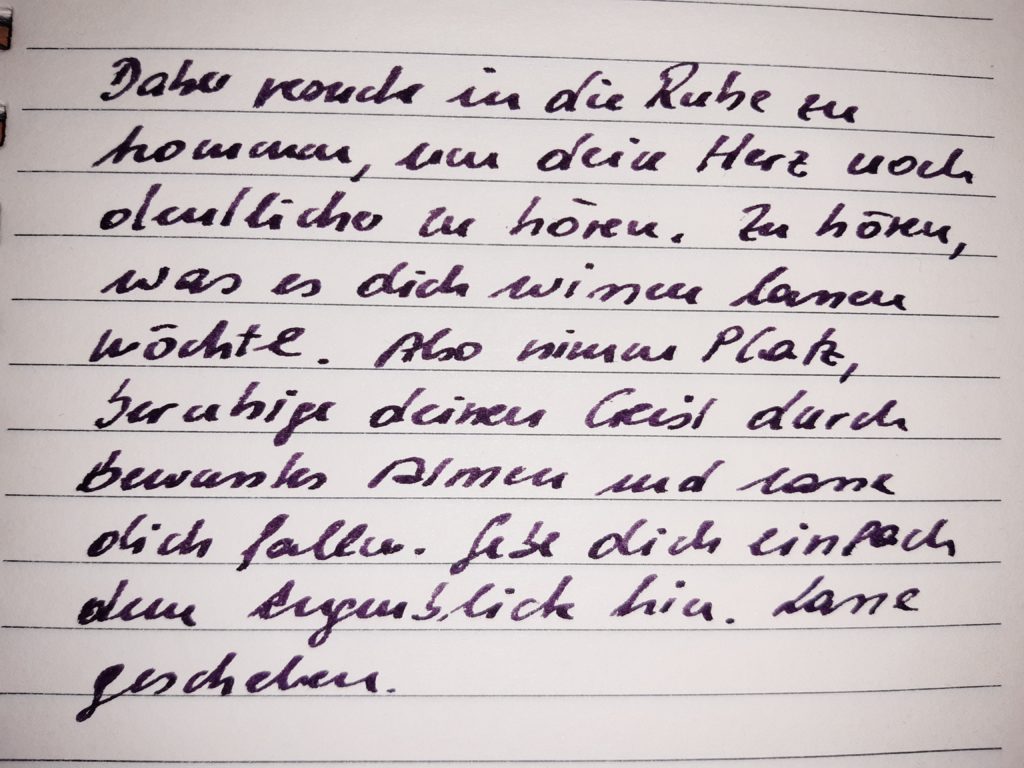 Daher versuche in die Ruhe zu
kommen, um dein Herz noch
deutlicher zu hören. Zu hören,
was es dich wissen lassen
möchte. Also nimm Platz,
beruhige deinen Geist durch
bewusstes Atmen und lasse
dich fallen. Gebe dich einfach
dem Augenblick hin. Lasse
geschehen.